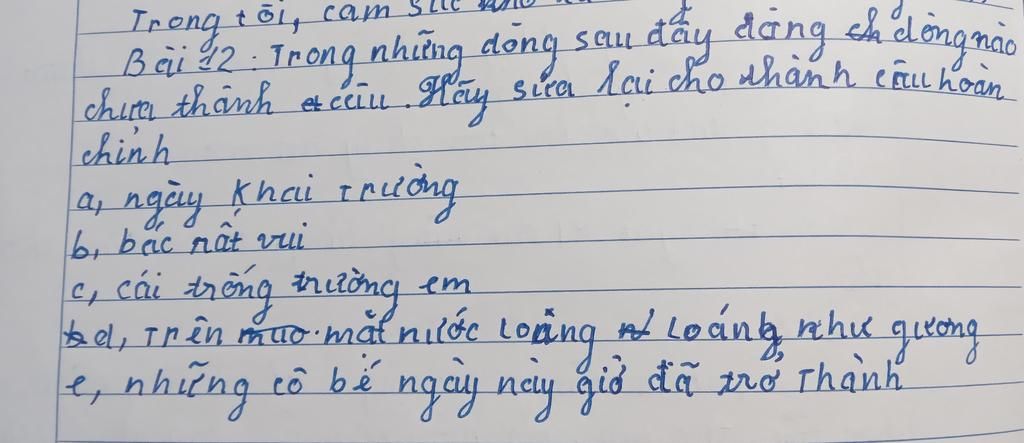 Trong tối, cam
Bài 12: Trong những dòng sau đấy dòng ch dòng nào
chưa thành câu. Hãy sửa lại cho thành câu hoàn
chỉnh
a, ngày khai trường
b, bác rất vui
c, cái trống trường em
d, Trên mặt nước loáng loáng như gương
e, những cô bé ngày này giờ đã trở thành